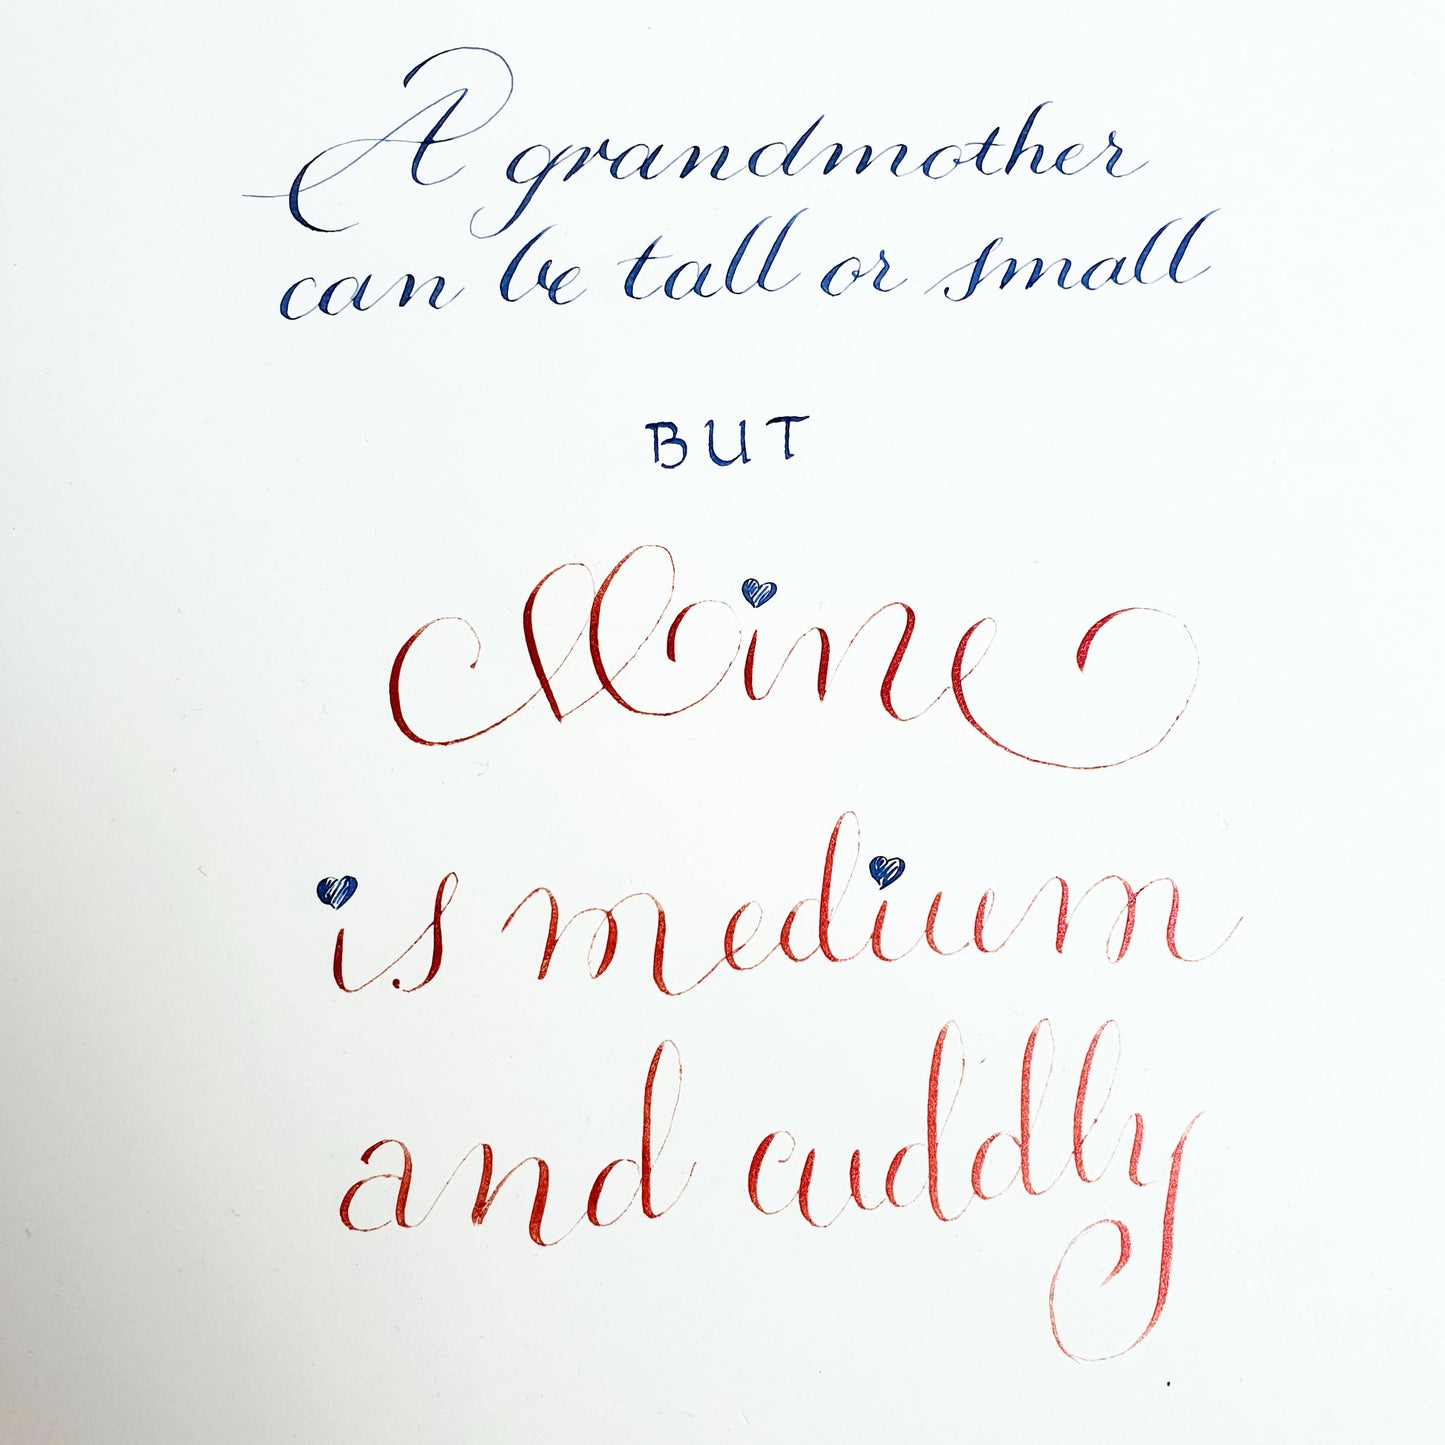 A grandmother
can be tall or small
BUT
Mine
is medium
and cuddly